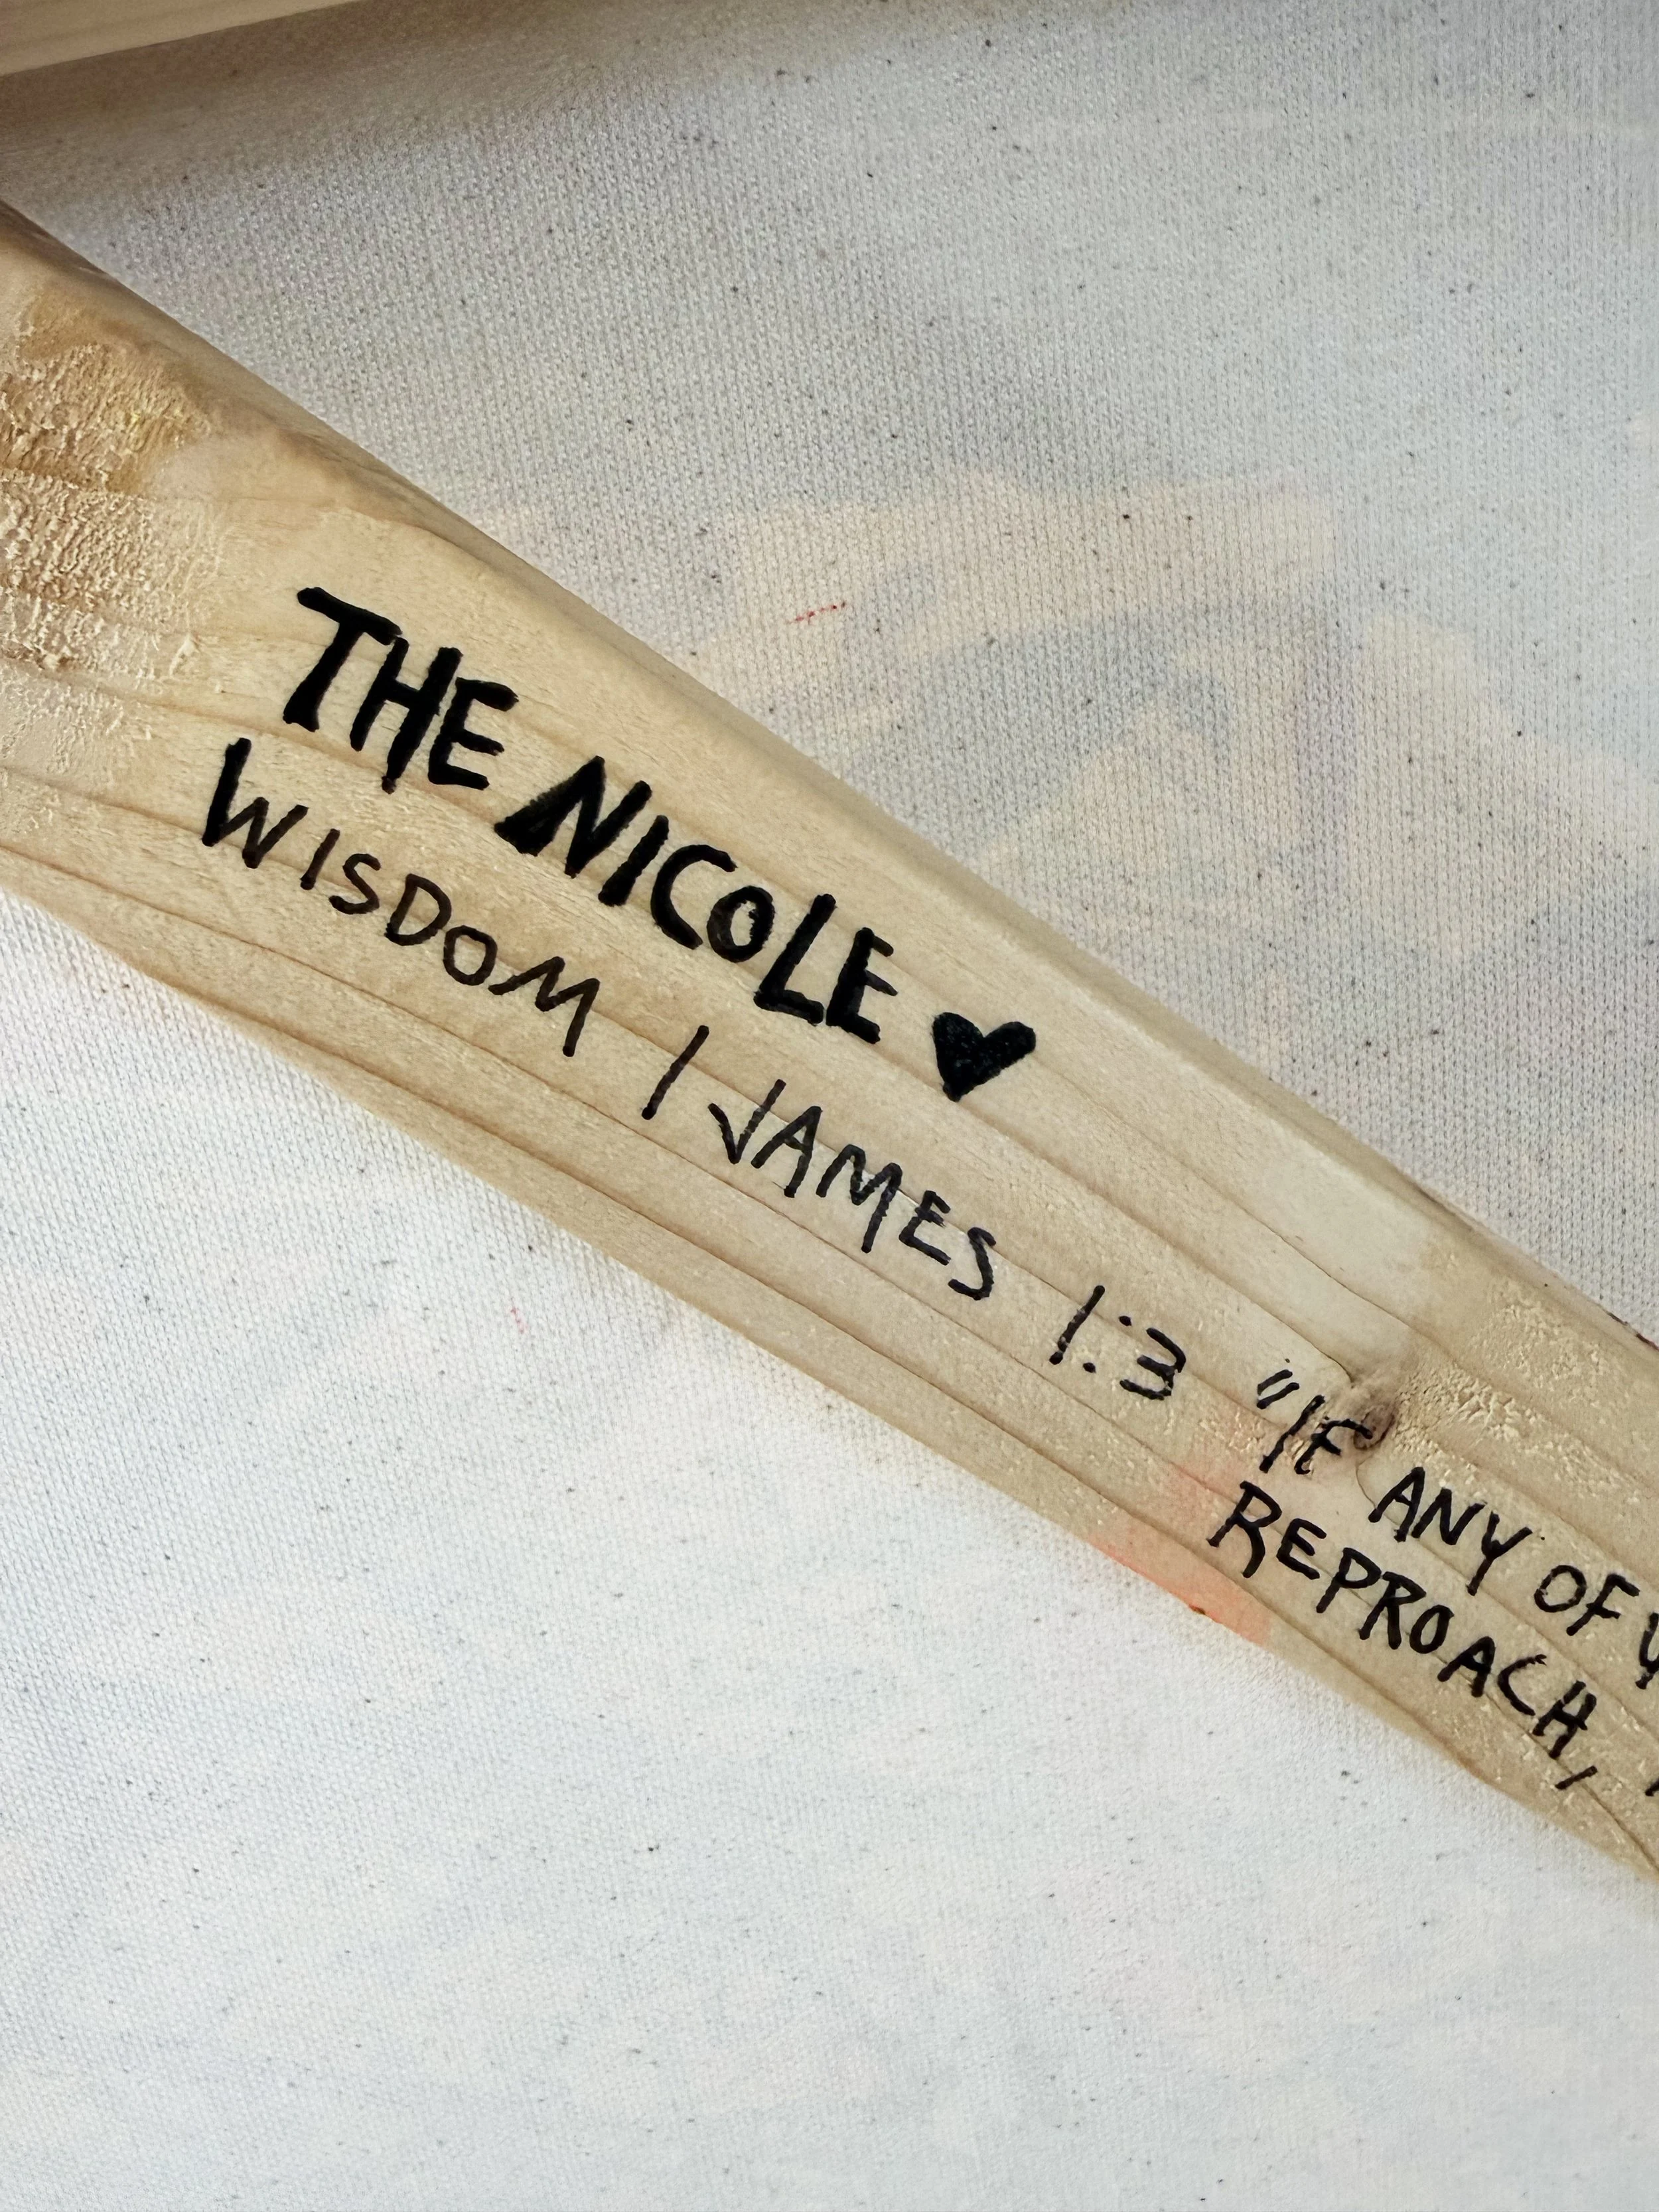 THE NICOLE ♥
WISDOM / JAMES 1:3 "IF ANY OF
REPROACH,